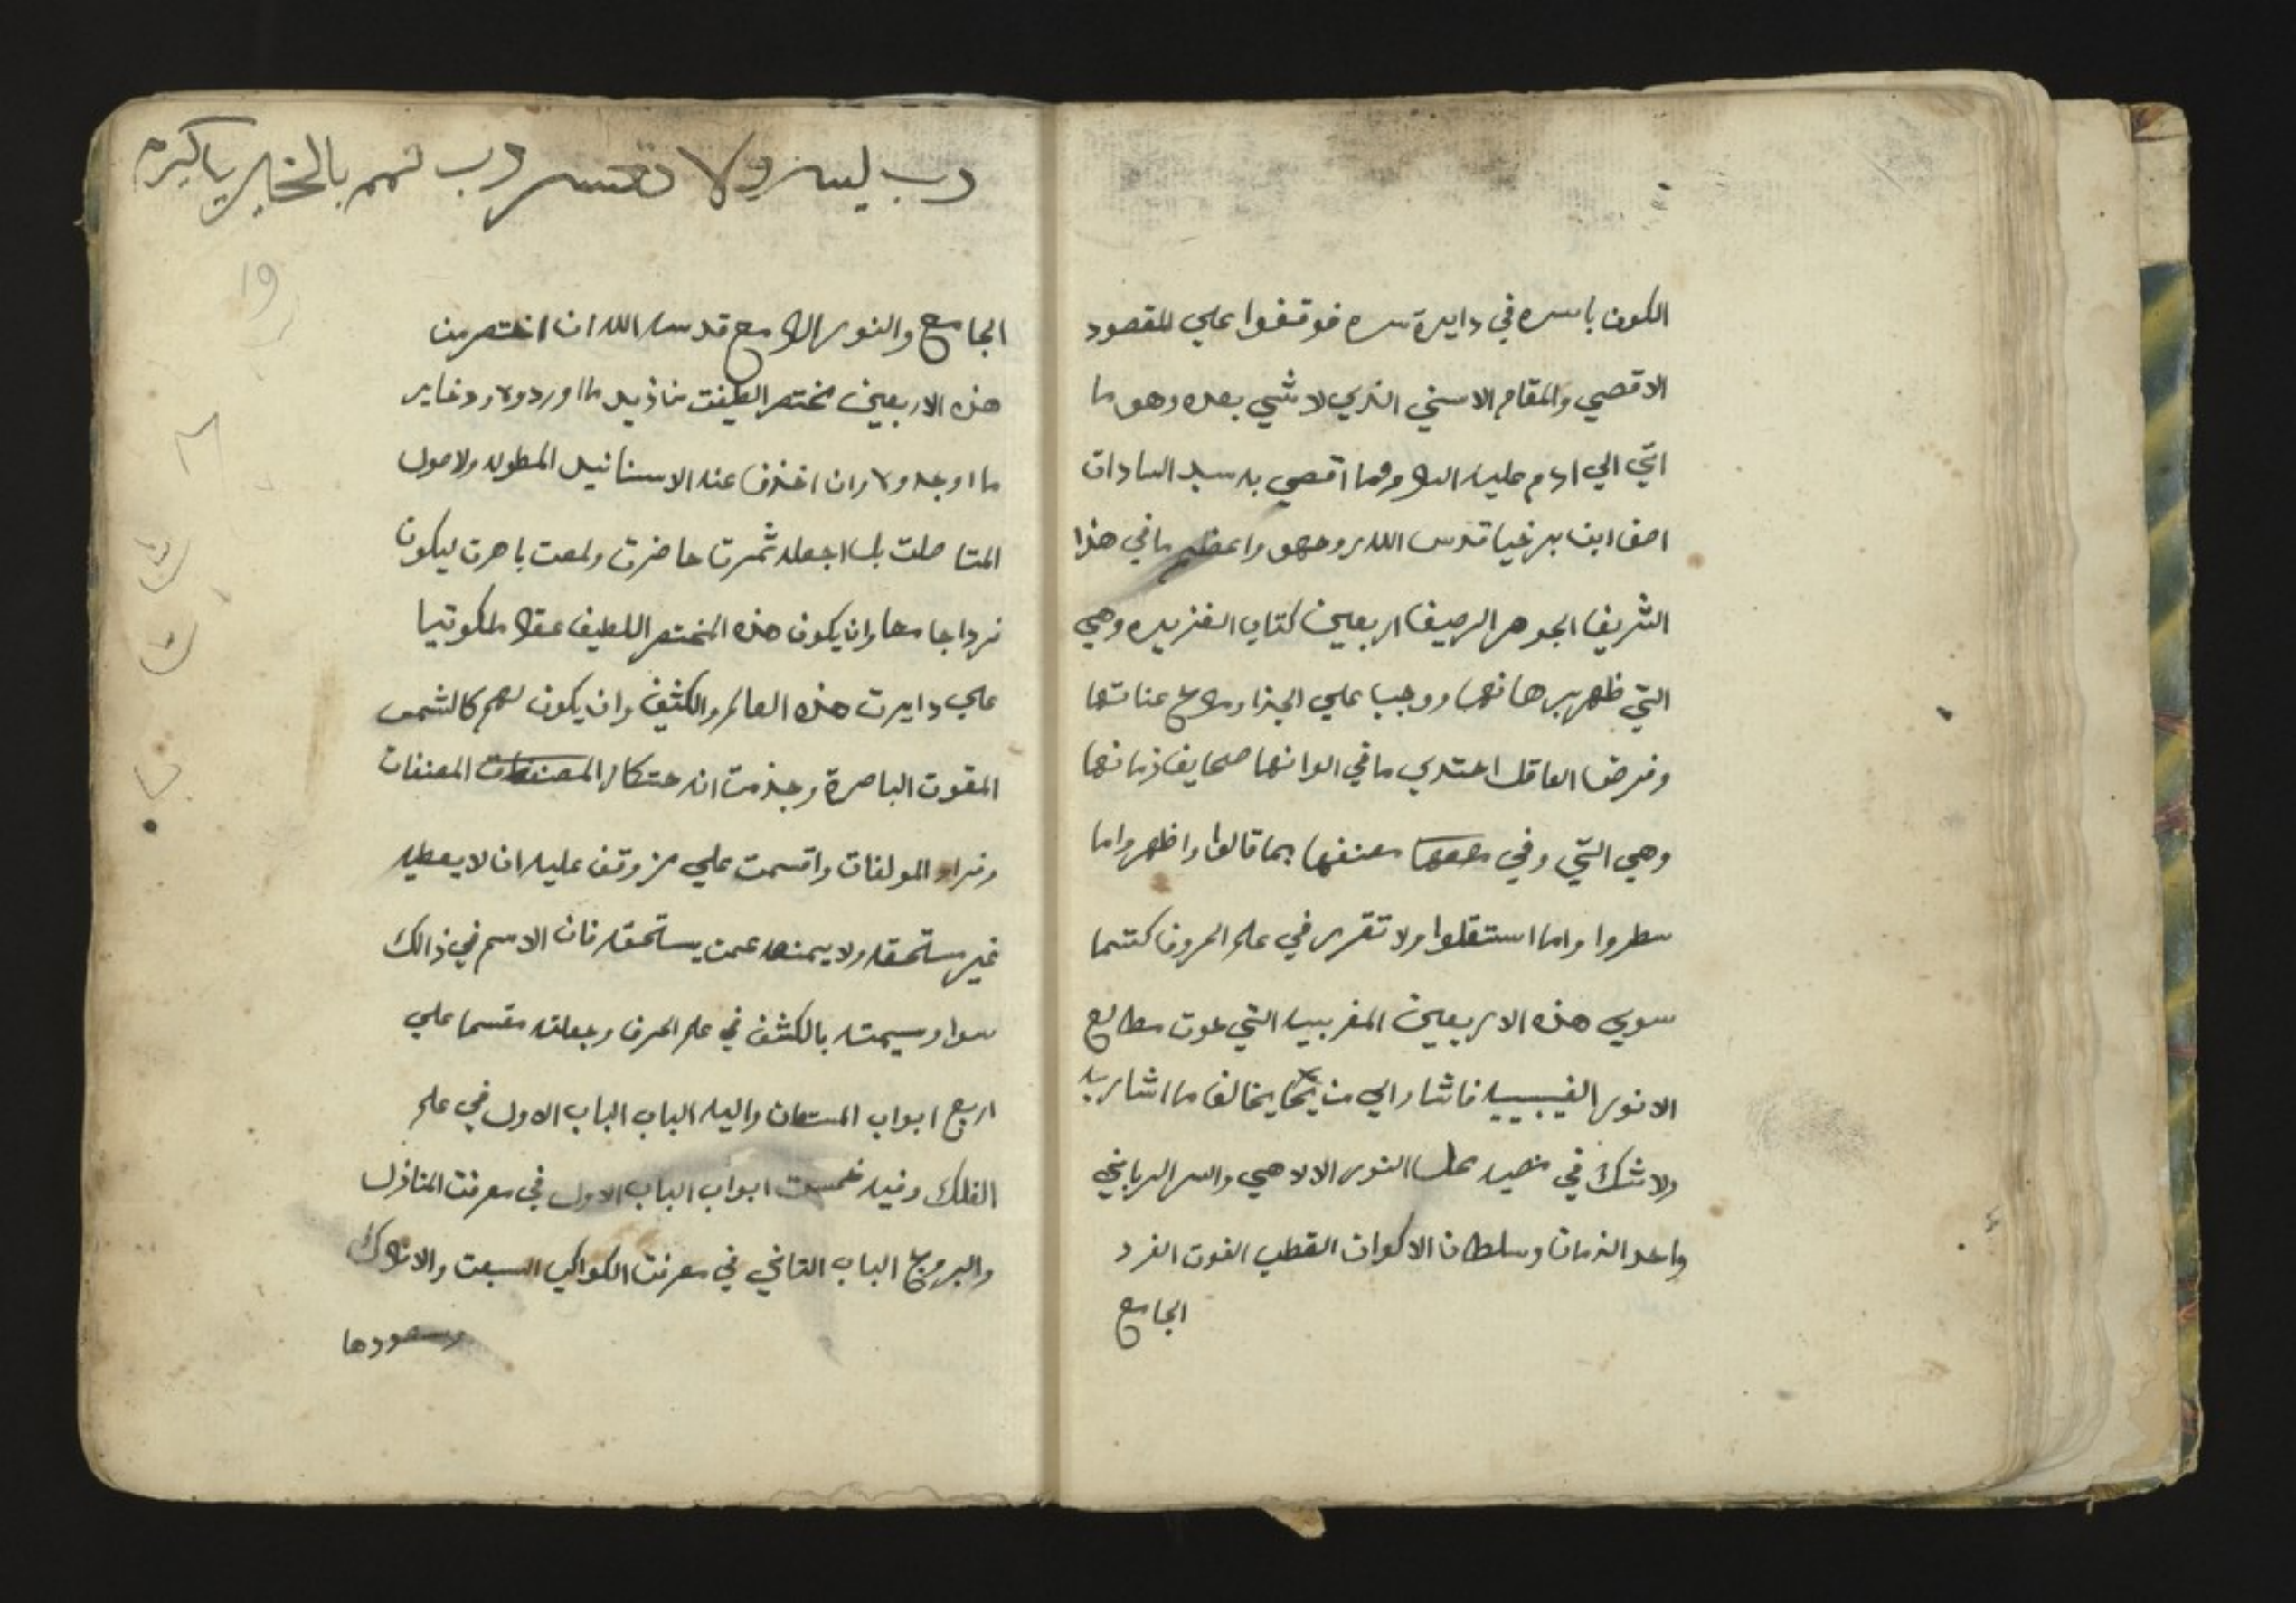 الكون باسره في دايرة سره فوقفوا علي المقصود
الاقصي والمقام الاسني الذي لا شي بعده وهو ما
اتي الي ادم عليه السلام وما اقصي به سيد السادات
اصف ابن برخيا قدس الله روحهو واعظم ما في هذا
الشريف الجوهر الرصيف اربعين كتاب الفزيره وهي
التي ظهر برهانها ووجب علي
وفرض العاقل اهتدي ما في الوانها صحايف زمانها
وهي التي وفي مصنفها بما قالوا واظهروا ما
سطروا واما استقلوا ولا تقرر في علم الحروف كتبما
سوي هذه الاربعين المغربيه التي حوت مطالع
الانور الغيبيه فاشار الي من يخالف ما اشار به
ولا شك في النور الالاهي والسر الرباني
واحد الزمان وسلطان الاكوان القطب الغوت الفرد
الجامع
رب يسر ولا تعسر رب تمم بالخير يا كريم
19
الجامع والنور اللامع قدس الله ان اختصر من
هذه الاربعين مختصر الطيفت ما اورد ولا دخاير
ما اوجد ولا وان اخذف عنه الاسنانيد المطوله ولاصول
المتاصلت بل اجعله ثمرت حاضرت ولمعت باهرت ليكون
فردا جامعا وان يكون هذه المختصر اللطيف عقلا ملكوتيا
علي دايرت هذه العالم والكثيف وان يكون لهم كالشمس
المقوت الباصرة وجذمت انه المصنفات
وفراد المولفات واقسمت علي من وقف عليه ان لا يعطيه
غير مستحقه ولا يمنعه عمن يستحقه فان الاسم في ذالك
سوا وسيمته بالكشف في علم الحرف وجعلته مقسما علي
اربع ابواب المستعان واليه الباب الباب الاول في علم
الفلك وفيه خمست ابواب الباب الاول في معرفت المنازل
والبروج الباب التاني في معرفت الكواكب السبعت والافلاك
وسعودها